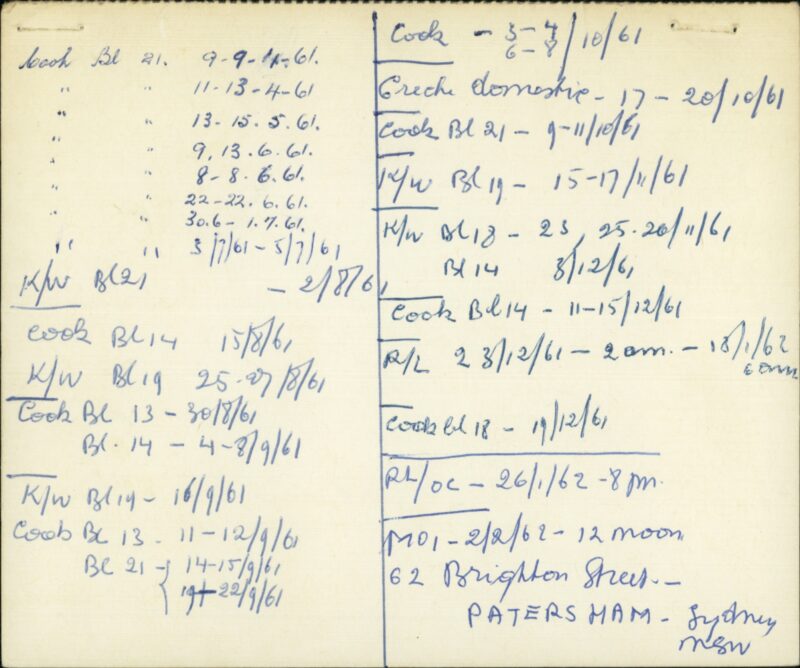 Cook Bl 21. 9-9-4-61.
" " 11-13-4-61
" " 13-15.5.61.
" " 9, 13.6.61.
" " 8-8.6.61.
" " 22-22.6.61.
" " 30.6-1.7.61.
" " 3/7/61-5/7/61
K/W Bl 21 - 2/8/61
Cook Bl 14 15/8/61
K/W Bl 19 25-27/8/61
Cook Bl 13 - 30/8/61
Bl. 14 - 4-8/9/61
K/W Bl 19 - 16/9/61
Cook Bl 13 - 11-12/9/61
Bl 21 - { 14-15/9/61
19-22/9/61
Cook - 3-4
6-8 /10/61
Creche domestic - 17 - 20/10/61
Cook Bl 21 - 9-11/10/61
K/W Bl 19 - 15-17/11/61
K/W Bl 13 - 23, 25-26/11/61
Bl 14 3/12/61
Cook Bl 14 - 11-15/12/61
R/L 23/12/61 - 2 am. - 13/1/62
6 am
Cook bl 18 - 19/12/61
RL/oc - 26/1/62 - 8 pm.
MO1 - 2/2/62 - 12 noon
62 Brighton Street. -
PATERSHAM - Sydney
NSW